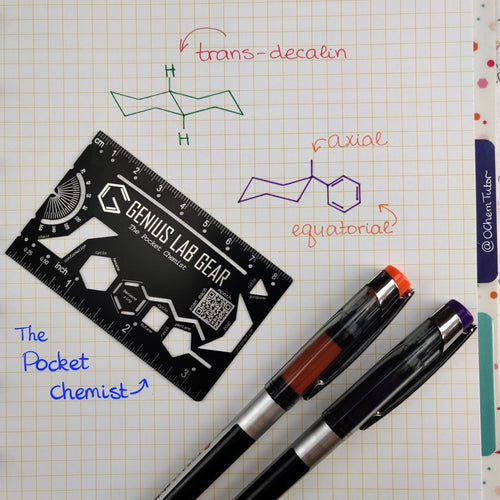 trans-decalin
H
H
axial
equatorial
@OChemTutor
cm 1 2 3 4 5 6 7 8
GENIUS LAB GEAR
The Pocket Chemist
inch 1 2 3
The
Pocket
Chemist